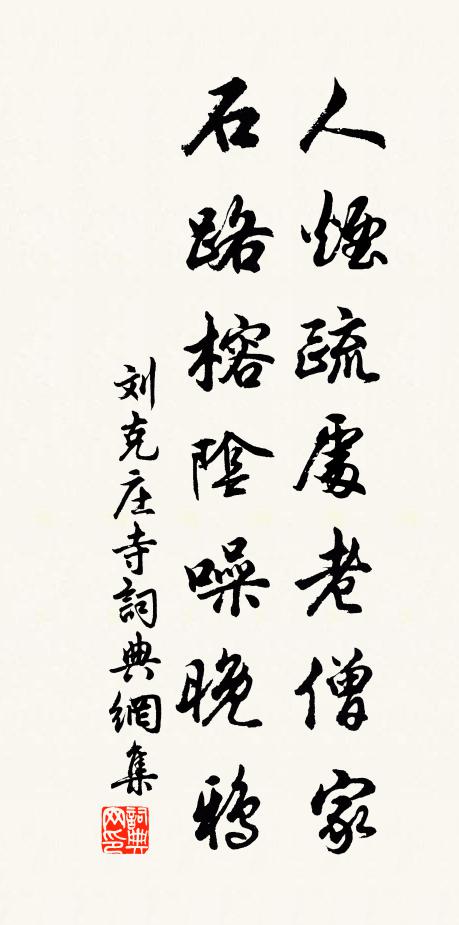 人煙疏處老僧家
石路榕陰噪晚鴉
刘克庄寺詞典網集
詞典网印